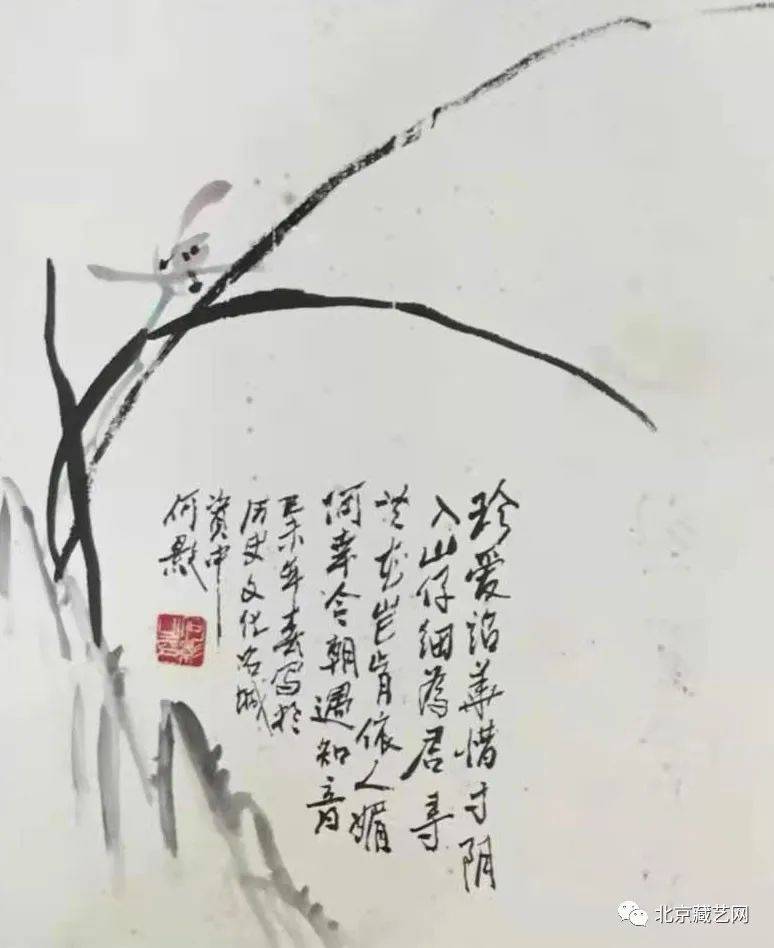 珍爱韶華惜寸阴
入山仔细為君寻
花岂肯依人媚
何幸今朝遇知音
未年春写於
历史文化名城
资中
何影
北京藏艺网